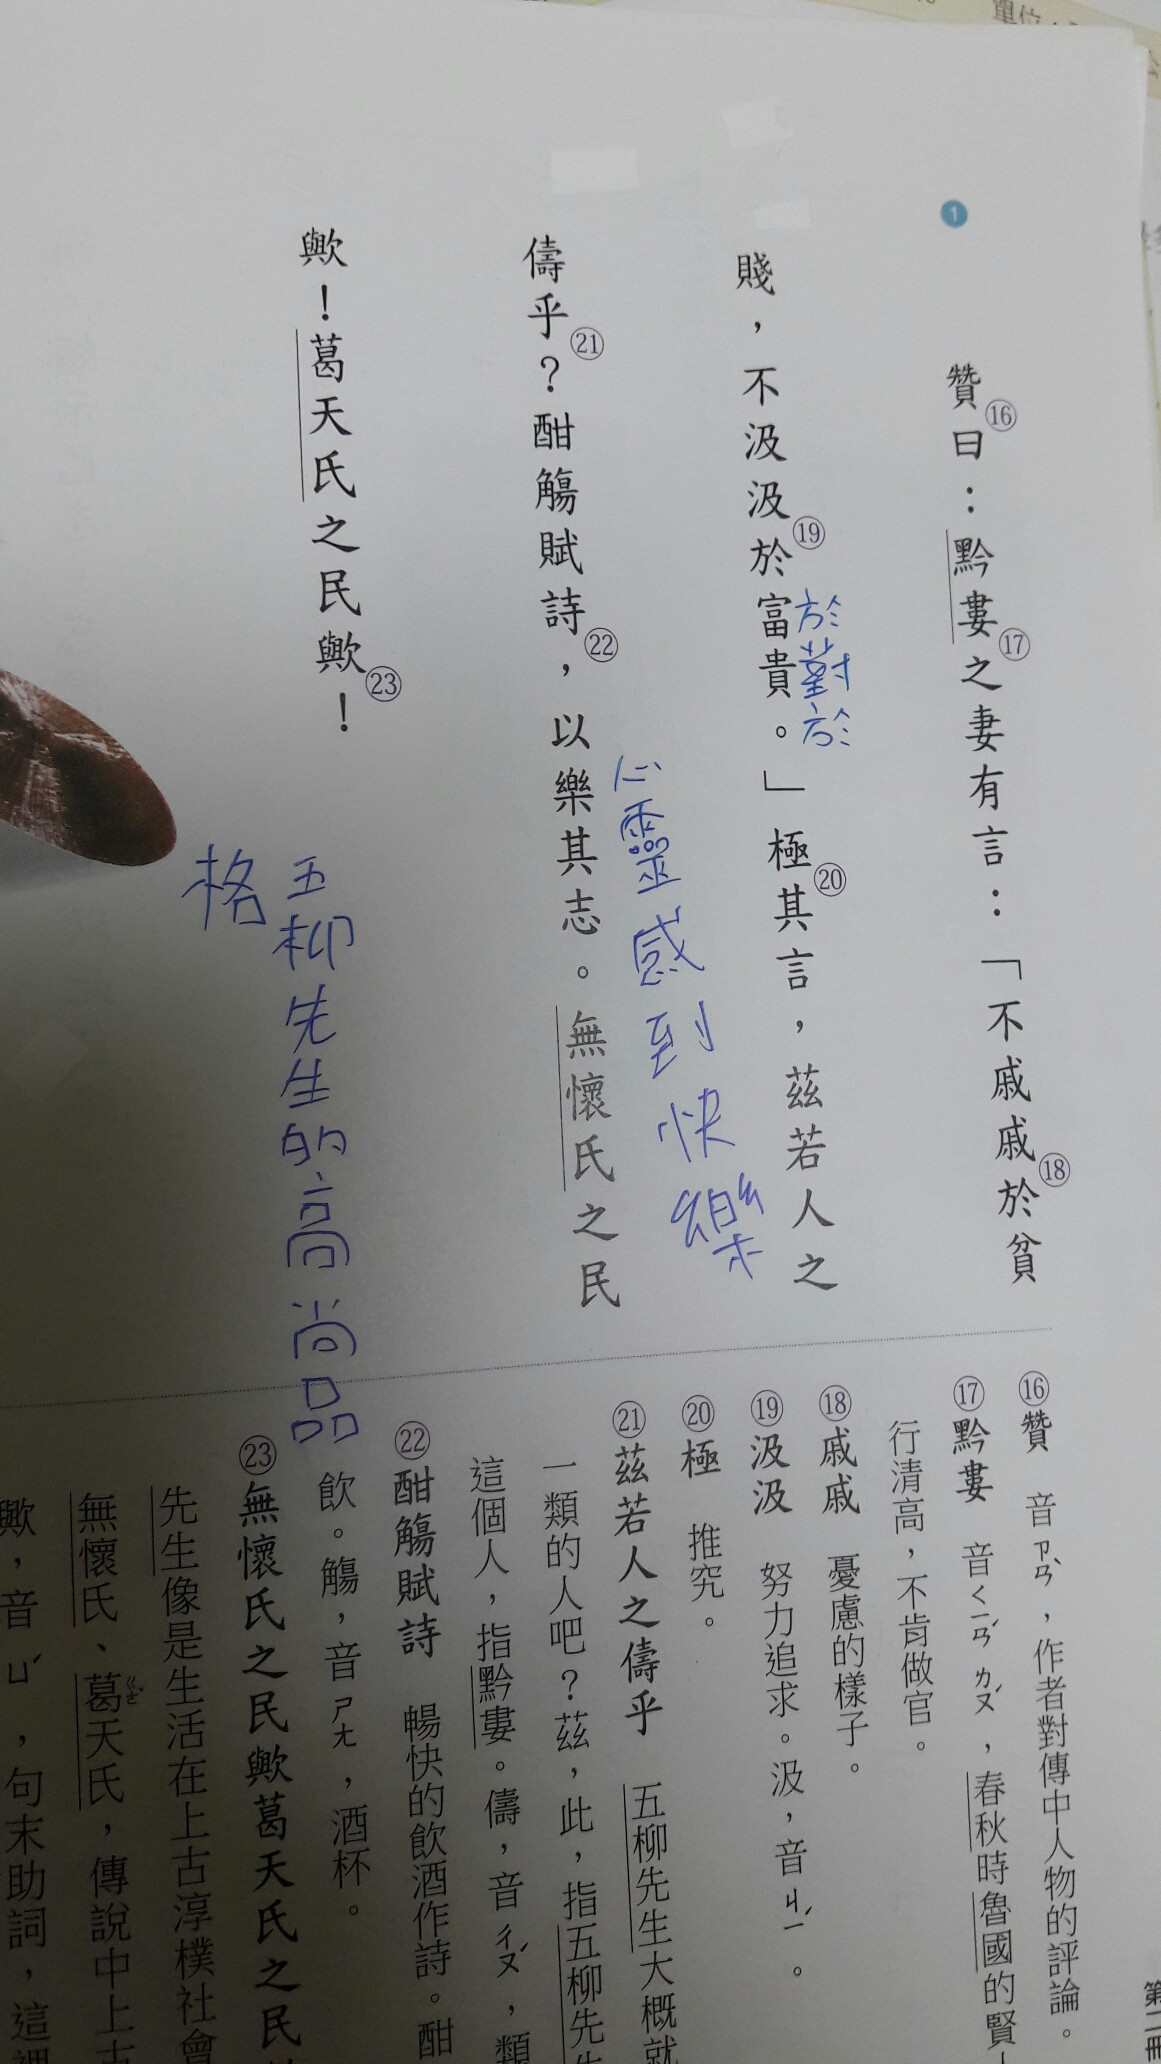 單位
1
贊⑯曰：黔婁⑰之妻有言：「不戚戚⑱於貧
賤，不汲汲⑲於富貴。」極⑳其言，茲若人之
於對於
儔乎㉑？酣觴賦詩㉒，以樂其志。無懷氏之民
心靈感到快樂
歟！葛天氏之民歟㉓！
五柳先生的高尚品
格
⑯贊 音ㄗㄢˋ，作者對傳中人物的評論。
⑰黔婁 音ㄑㄧㄢˊ ㄌㄡˊ，春秋時魯國的賢
行清高，不肯做官。
⑱戚戚 憂慮的樣子。
⑲汲汲 努力追求。汲，音ㄐㄧˊ。
⑳極 推究。
㉑茲若人之儔乎 五柳先生大概就
一類的人吧？茲，此，指五柳先
這個人，指黔婁。儔，音ㄔㄡˊ，類
㉒酣觴賦詩 暢快的飲酒作詩。酣
飲。觴，音ㄕㄤ，酒杯。
㉓無懷氏之民歟葛天氏之民
先生像是生活在上古淳樸社會
無懷氏、葛ㄍㄜˇ天氏，傳說中上古
歟，音ㄩˊ，句末助詞，這裡
第二冊